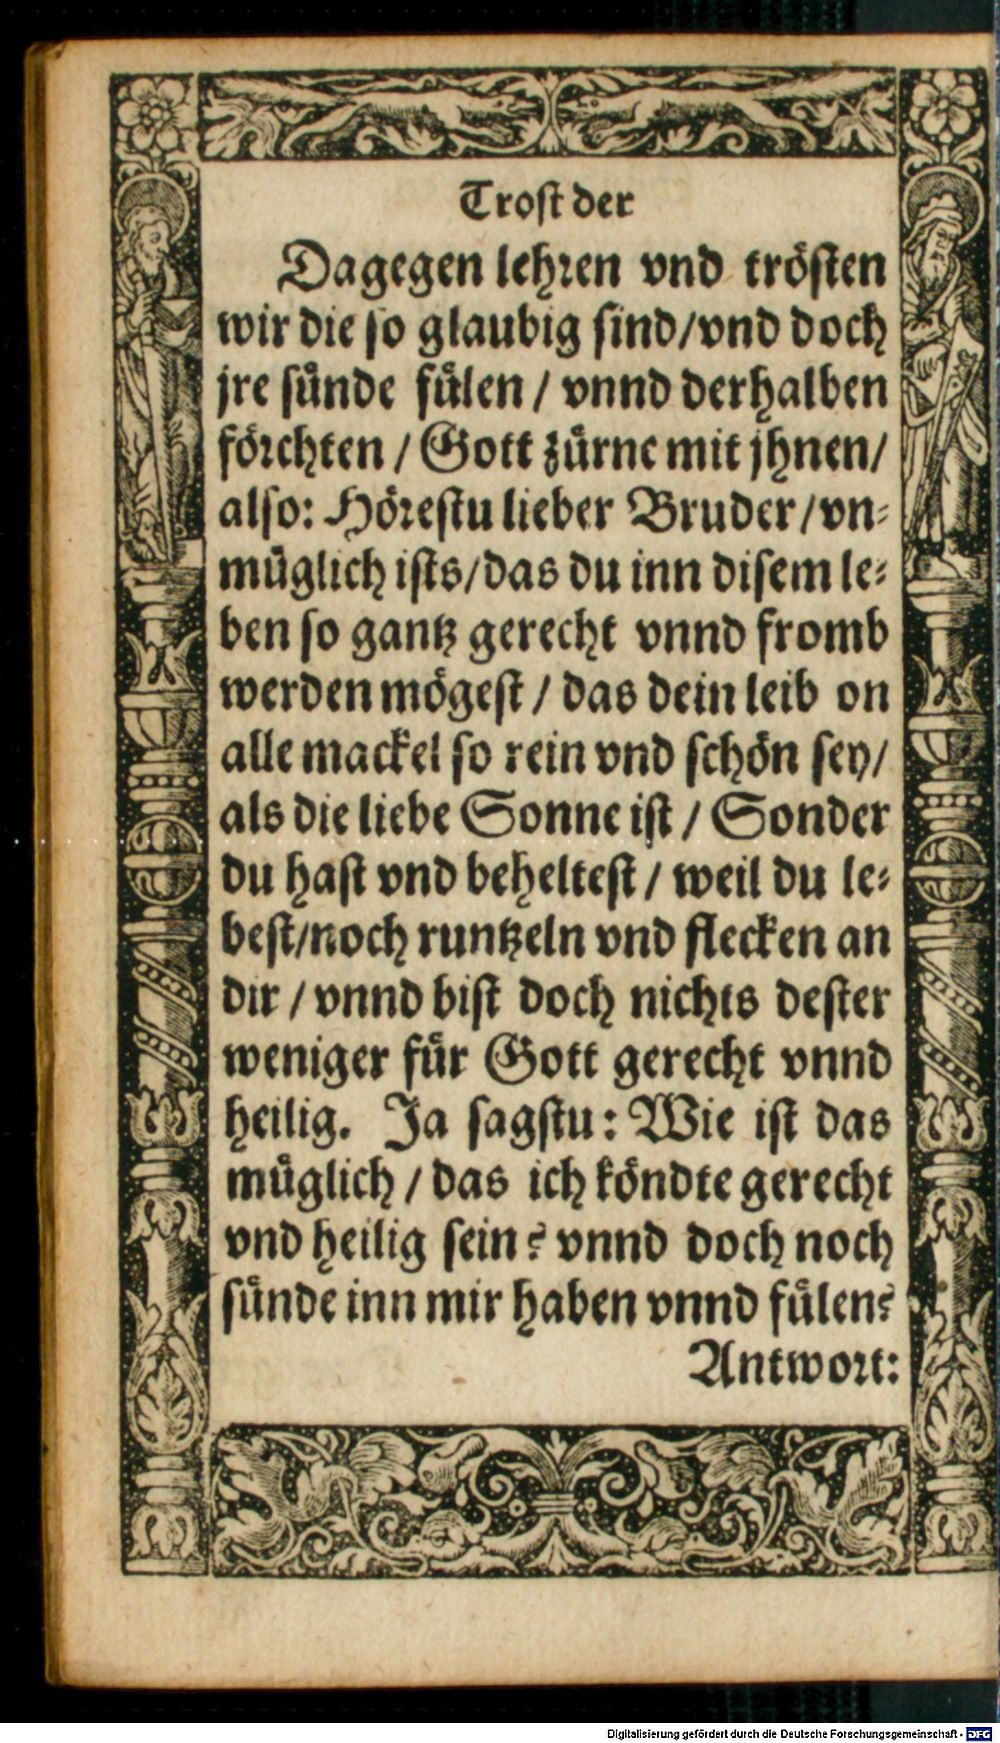 Trost der
Dagegen lehren vnd trösten
wir die so glaubig sind/vnd doch
jre sünde fülen / vnnd derhalben
förchten / Gott zürne mit jhnen/
also: Hörestu lieber Bruder/vn-
müglich ists/das du inn disem le-
ben so gantz gerecht vnnd fromb
werden mögest / das dein leib on
alle mackel so rein vnd schön sey/
als die liebe Sonne ist / Sonder
du hast vnd beheltest / weil du le-
best/noch runtzeln vnd flecken an
dir / vnnd bist doch nichts dester
weniger für Gott gerecht vnnd
heilig. Ja sagstu: Wie ist das
müglich / das ich köndte gerecht
vnd heilig sein? vnnd doch noch
sünde inn mir haben vnnd fülen?
Antwort:
Digitalisierung gefördert durch die Deutsche Forschungsgemeinschaft - DFG